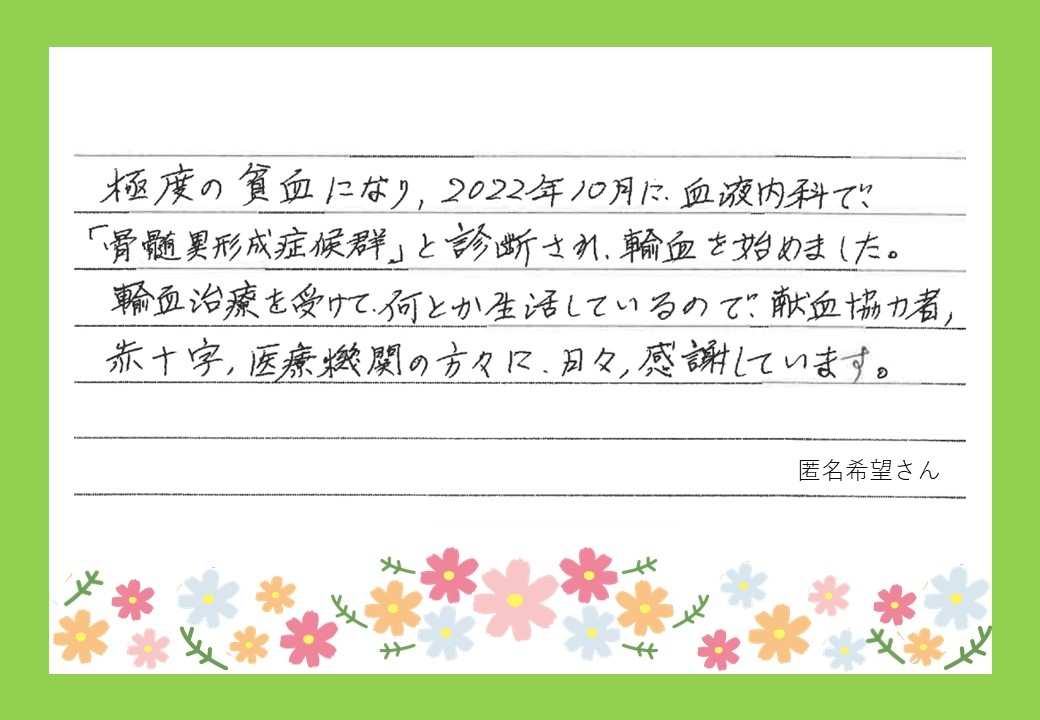 極度の貧血になり,2022年10月に、血液内科で、
「骨髄異形成症候群」と診断され、輸血を始めました。
輸血治療を受けて、何とか生活しているので、献血協力者,
赤十字,医療機関の方々に、日々,感謝しています。
匿名希望さん